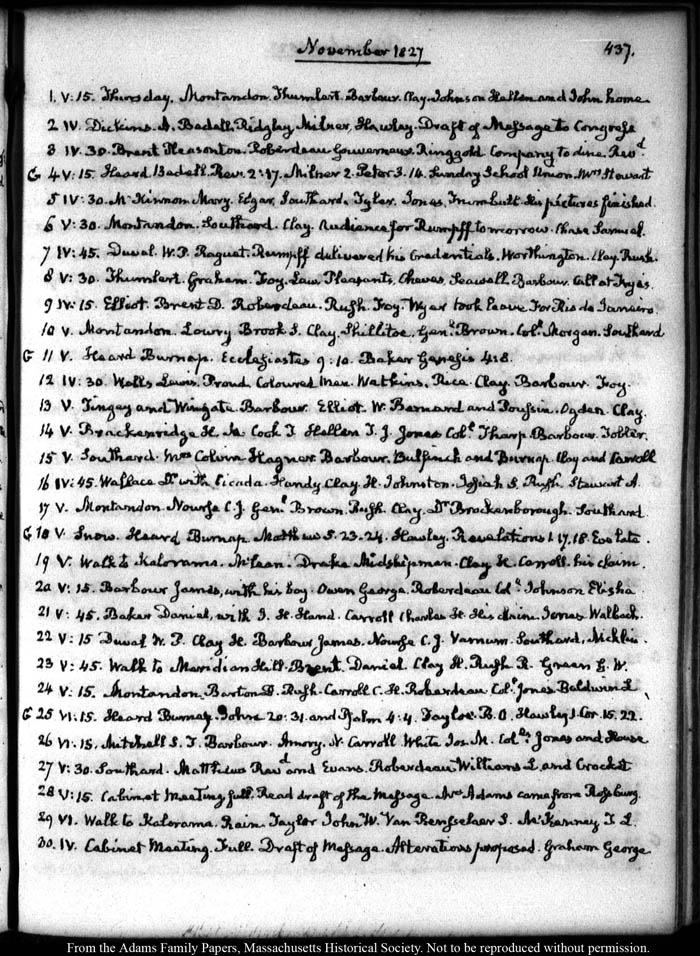 November 1827
437.
1. V: 15. Thursday. Montandon. Thumlert. Barbour. Clay. Johnson Hellen and John home
2 IV. Dickins. A. Badell. Ridgley. Milner. Hawley. Draft of Message to Congress
3 IV. 30. Brent Pleasonton. Roberdeau Gouverneur. Ringgold Company to dine. Revd
G 4 V: 15. Heard Bedell. Rev. 2: 17. Milner 2. Peter 3. 14. Sunday School Union. Mrs Stewart
5 IV: 30. McKinnon Mary. Edgar. Southard. Tyler. Jones. Trumbull. His pictures finished.
6 V: 30. Montandon. Southard. Clay. Audience for Rumpff tomorrow. Chase Samuel.
7 IV: 45. Duval. W. P. Raguet. Rumpff delivered his Credentials. Worthington. Clay. Rush.
8 V: 30. Thumlert. Graham. Foy. Law Pleasants. Cheves. Seawall. Barbour. Call at Frye's.
9 IV: 15. Elliot. Brent D. Roberdeau. Rush. Foy. Wyer took leave For Rio de Janeiro.
10 V. Montandon. Lowry Brook S. Clay. Shillitoe. Genl Brown. Coll Morgan. Southard
G 11 V. Heard Burnap. Ecclesiastes 9: 10. Baker Genesis 4: 8.
12 IV: 30. Walls Lewis. Proud Coloured Man. Watkins. Rice. Clay. Barbour. Foy.
13 V. Tingey and Wingate. Barbour. Elliot. W. Bernard and Poussin. Ogden. Clay.
14 V. Brackenridge H. M. Cook J Hellen T. J. Jones Coll Tharp. Barbour. Tobler.
15 V. Southard. Mrs Colvin Hagner. Barbour. Bulfinch and Burnap. Clay and Carroll
16 IV: 45. Wallace Dr with Cicada. Handy Clay H. Johnston. Josiah S. Rush. Stewart A.
17 V. Montandon. Nourse C. J. Genl Brown. Rush. Clay. Dr Brockenborough. Southard
G 18 V. Snow. Heard Burnap. Matthew 5. 23. 24. Hawley. Revelations 1. 17. 18. Eve late.
19 V. Walk to Kalorama. McLean. Drake Midshipman. Clay H. Carroll. his claim.
20 V: 15. Barbour James, with his boy. Owen George. Roberdeau Coll Johnson Elisha
21 V: 45. Baker Daniel, with J. H. Hand. Carroll Charles H. His claim. Jones Walback.
22 V: 15 Duval W. P. Clay H. Barbour James. Nourse C. J. Varnum. Southard. Nicklin.
23 V: 45. Walk to Meridian Hill. Brent. Daniel. Clay H. Rush R. Green E. W.
24 V: 15. Montandon. Barton B. Rush. Carroll C. H. Roberdeau Coll Jones. Baldwin L
G 25 VI: 15. Heard Burnap. John 20: 31. and Psalm 4: 4. Tayloe. B. O. Hawley 1 Cor. 15. 22.
26 VI: 15. Mitchell S. T. Barbour. Amory. N. Carroll White Jos. M. Colls Jones and House
27 V: 30. Southard. Matthews Revd and Evans. Roberdeau. Williams L and Crockett
28 V: 15. Cabinet Meeting full. Read draft of the Message. Mrs Adams came from Rossburg.
29 VI. Walk to Kalorama. Rain. Taylor John W. Van Rensselaer S. McKenney T L.
30. IV. Cabinet Meeting. Full. Draft of Message. Alterations proposed. Graham George
From the Adams Family Papers, Massachusetts Historical Society. Not to be reproduced without permission.